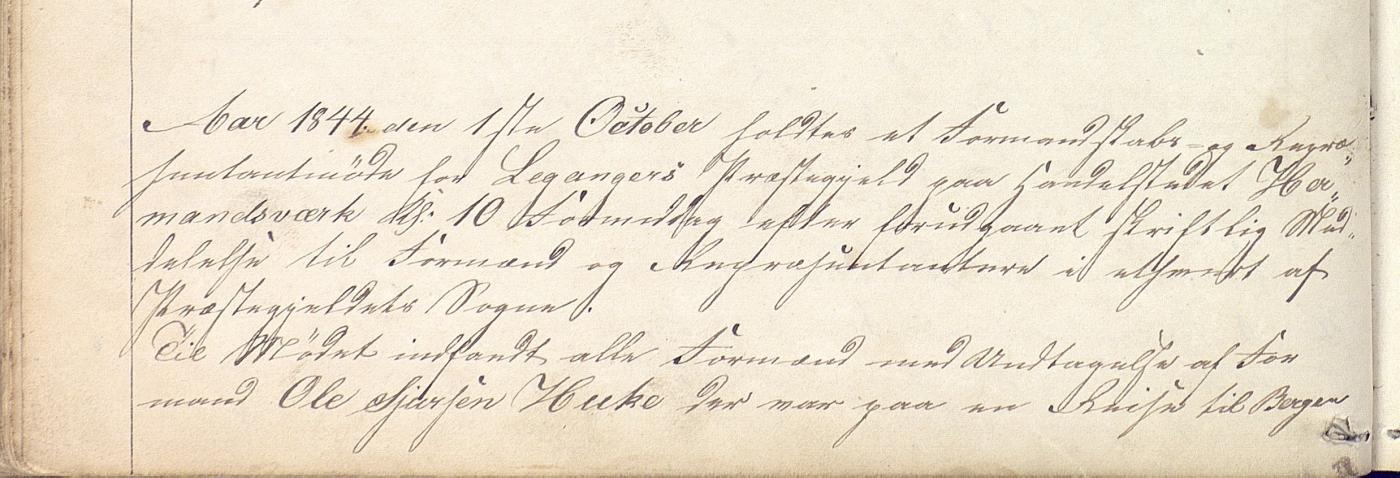 Aar 1844. den 1ste October holdtes et Formandskabs- og Repræ-
sentantmöde for Legangers Præstegjeld paa Handelstedet Her-
mandsværk Kl. 10 Formiddag efter forudgaaet skriftlig Med-
delelse til Formænd og Repræsentantere i ethvert af
Præstegjeldets Sogne.
Til Mødet indfandt alle Formænd med Undtagelse af For
mand Ole Huke der var paa en Reise til Bergen